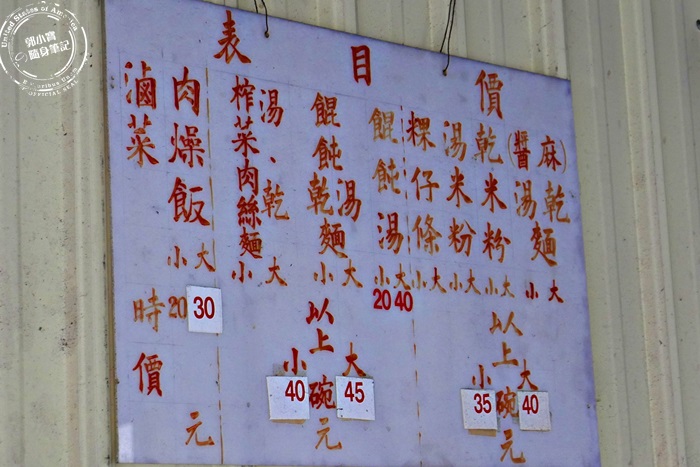 價目表
(醬麻)湯乾麵 小大
乾米粉 小大
湯米粉 小大
粿仔條 小大
以上碗元
小35 大40
餛飩湯 小20 大40
餛飩乾湯麵 小大
榨菜肉絲麵 湯、乾 小大
以上碗元
小40 大45
肉燥飯 小20 大30 元
滷菜 時價
郭小寶
隨身筆記